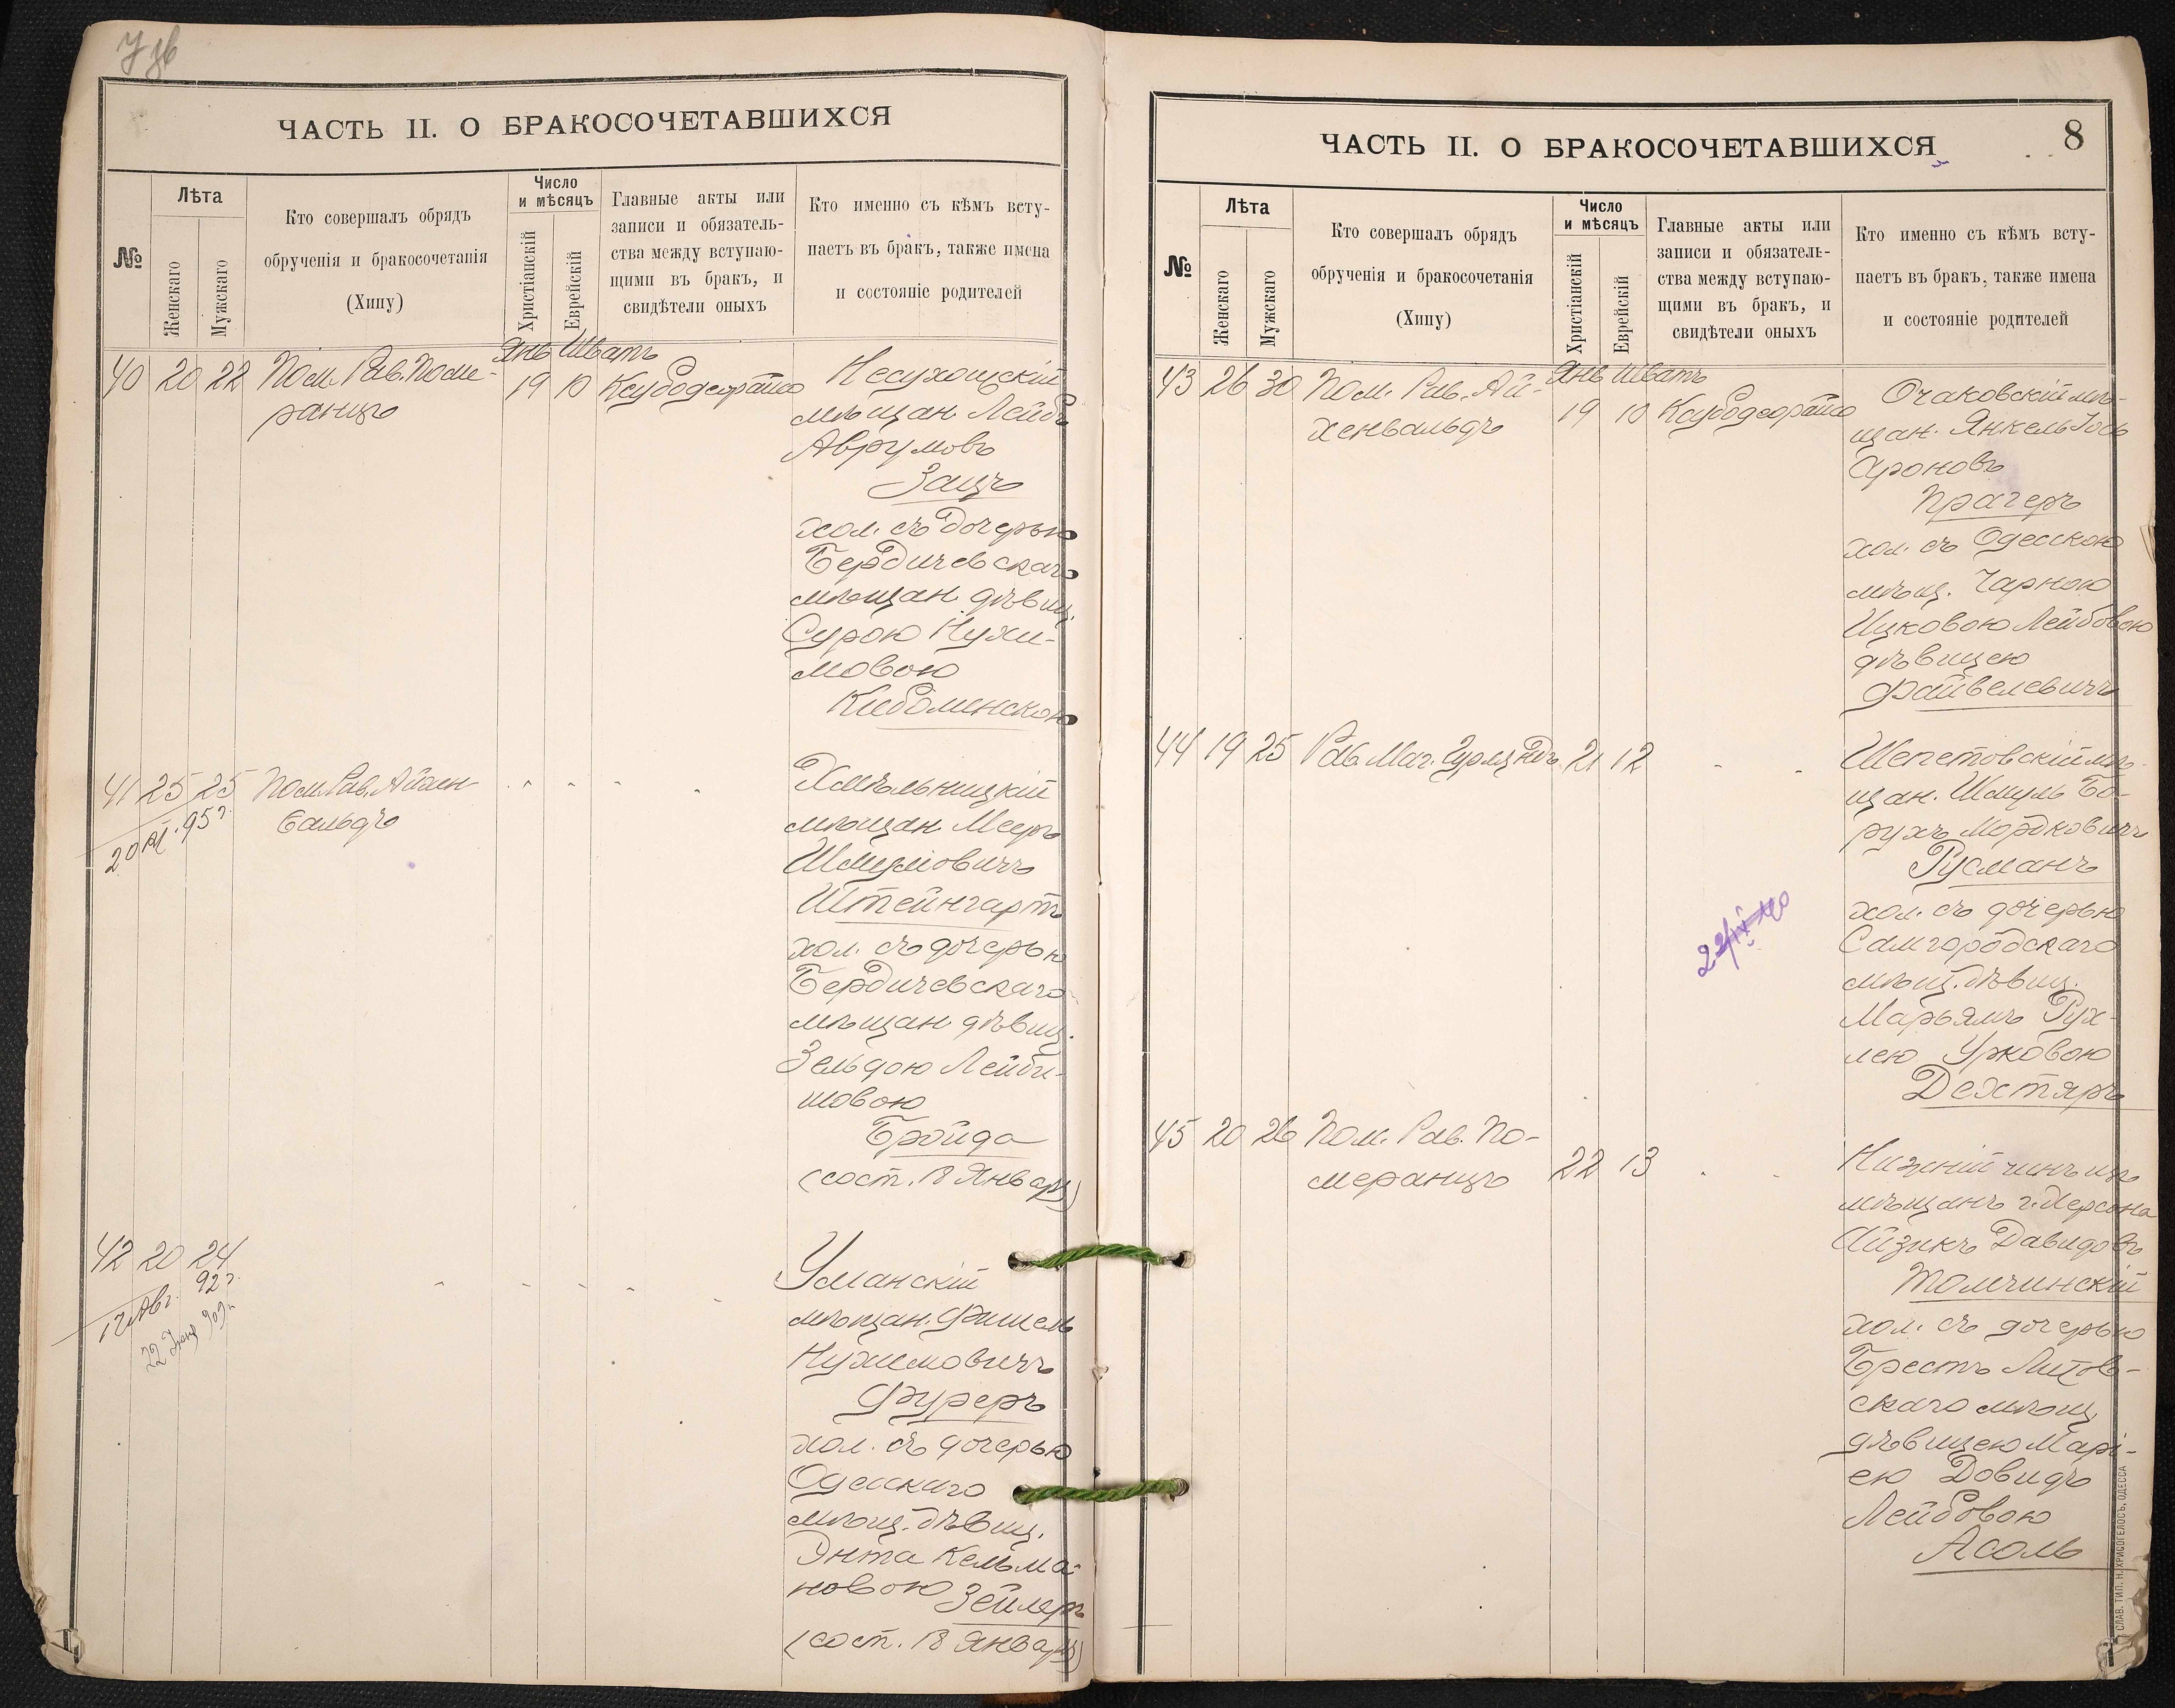 ЧАСТЬ II. О БРАКОСОЧЕТАВШИХСЯ
№
Лѣта
Женскаго
Мужскаго
Кто совершалъ обрядъ
обрученія и бракосочетанія
(Хипу)
Число
и мѣсяцъ
Христіанскій
Еврейскій
Главные акты или
записи и обязатель-
ства между вступаю-
щими въ бракъ, и
свидѣтели оныхъ
Кто именно съ кѣмъ всту-
паетъ въ бракъ, также имена
и состояніе родителей
40 20 22 Пом. Рав. Поме-
ранцъ
Янв Шватъ
19 10
Несухоицкій
мѣщан Лейбъ
Аврумовъ
Зацъ
хол. съ дочерью
Бердичевскаго
мѣщан дѣвиц.
Сурою Нухи-
мовою
41 25 25 Пом. Рав. Айхен-
вальдъ
20 95 г.
Хмѣльницкій
мѣщан Мееръ
Шмулёвичъ
Штейнгартъ
хол. съ дочерью
Бердичевскаго
мѣщан дѣвиц.
Зельдою Лейби-
шовою
Бройда
(сост. 18 Январ)
42 20 24
12 Авг. 92 г.
Уманскій
мѣщан. Фишель
Нухимовичъ
Фуреръ
хол. съ дочерью
Одесскаго
мѣщ. дѣвиц.
Энта Кельма-
новою Зейлеръ
(сост. 18 Январ)
ЧАСТЬ II. О БРАКОСОЧЕТАВШИХСЯ
8
№
Лѣта
Женскаго
Мужскаго
Кто совершалъ обрядъ
обрученія и бракосочетанія
(Хипу)
Число
и мѣсяцъ
Христіанскій
Еврейскій
Главные акты или
записи и обязатель-
ства между вступаю-
щими въ бракъ, и
свидѣтели оныхъ
Кто именно съ кѣмъ всту-
паетъ въ бракъ, также имена
и состояніе родителей
43 26 30 Пом. Рав. Ай-
хенвальдъ
Янв Шватъ
19 10
Очаковскій мѣ-
щан. Янкель Іось
Ароновъ
Прагеръ
хол. съ Одесскою
мѣщ. Чарною
Ицковою Лейбовою
дѣвицею
Файвелевичъ
44 19 25 Рав. 21 12
Шепетовскій мѣ-
щан. Шмуль Бо-
рухъ Мордковичъ
Русманъ
хол. съ дочерью
Самгородскаго
мѣщ. дѣвиц.
Марьямъ Рух-
лею Урковою
Дехтяръ
45 20 26 Пом. Рав. По-
меранцъ 22 13
Нижній чинъ изъ
мѣщанъ г. Херсона
Айзикъ Давидовъ
Толчинскій
хол. съ дочерью
Брестъ Литов-
скаго мѣщ.
дѣвицею Марі-
ею Довидъ
Лейбовою
Асоль
СЛАВ. ТИП. Н. ХРИСОГЕЛОСЪ, ОДЕССА